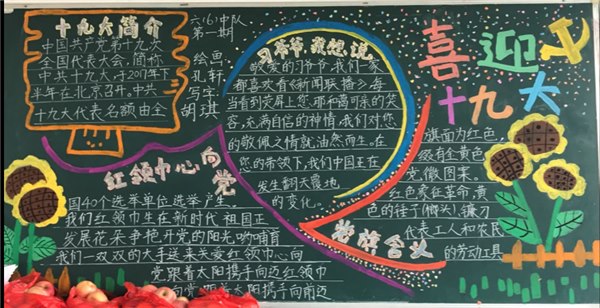 十九大简介
中国共产党第十九次
全国代表大会,简称
中共十九大,于2017年下
半年在北京召开。中共
十九大代表名额由全
国40个选举单位选举产生。
六(6)中队
第一期
绘画
孔轩
写字
胡琪
习爷爷我想说
敬爱的习爷爷,我们一家
都喜欢看《新闻联播》,每
当看到荧屏上您那和蔼可亲的笑
容,充满自信的神情,我们对您
的敬佩之情就油然而生。在
您的带领下,我们中国正在
发生翻天覆地
的变化。
喜迎
十九大
红领巾心向
党
我们红领巾生在新时代 祖国正
发展花朵争艳开党的阳光哟哺育
我们一双双的大手送来关爱红领巾心向
党跟着太阳携手向迈红领巾
心向党 跟着太阳携手向前迈
党旗含义
旗面为红色,
缀有金黄色
党徽图案。
红色象征革命,黄
色的锤子(榔头)、镰刀
代表工人和农民
的劳动工具